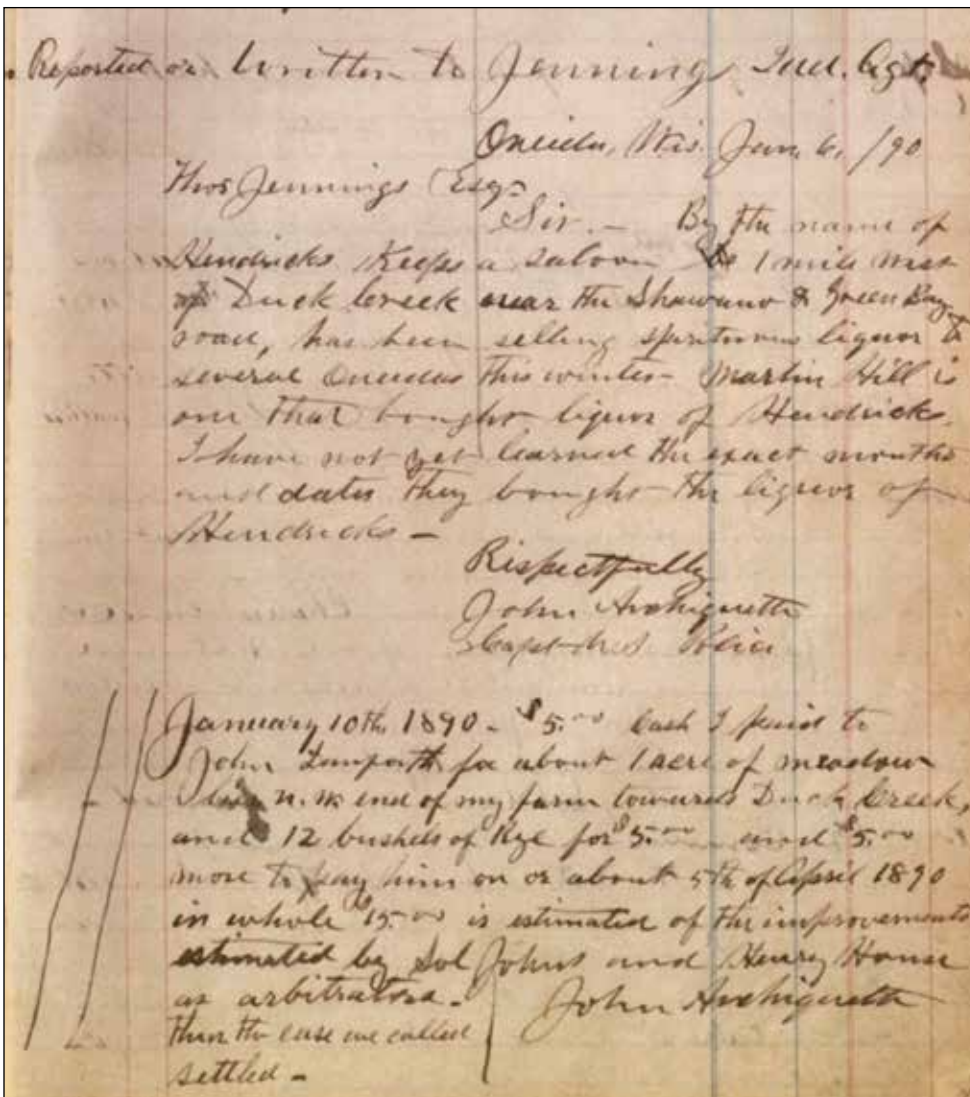 Reported or written to Jennings Ind. Agt.
Oneida, Wis. Jan. 6, /90
Thos Jennings Esq-
Sir. – By the name of
Hendricks Keeps a saloon 1 mile west
of Duck Creek near the Shawano & Green Bay
road, has been selling spirituous liquor to
several Oneidas this winter – Martin Hill is
one that bought liquor of Hendricks.
I have not yet learned the exact months
and dates they bought the liquor of
Hendricks –
Respectfully
John Archiquette
Capt. Police
January 10th 1890 – $5.00 Cash I paid to
John for about 1 acre of meadow
n.w. end of my farm towards Duck Creek,
and 12 bushels of Rye for $5.00 and $5.00
more to pay him on or about 5th of April 1890
in whole $15.00 is estimated of the improvements
estimated by Sol Johns and Henry House
as arbitrators – John Archiquette
then the case we called
settled –